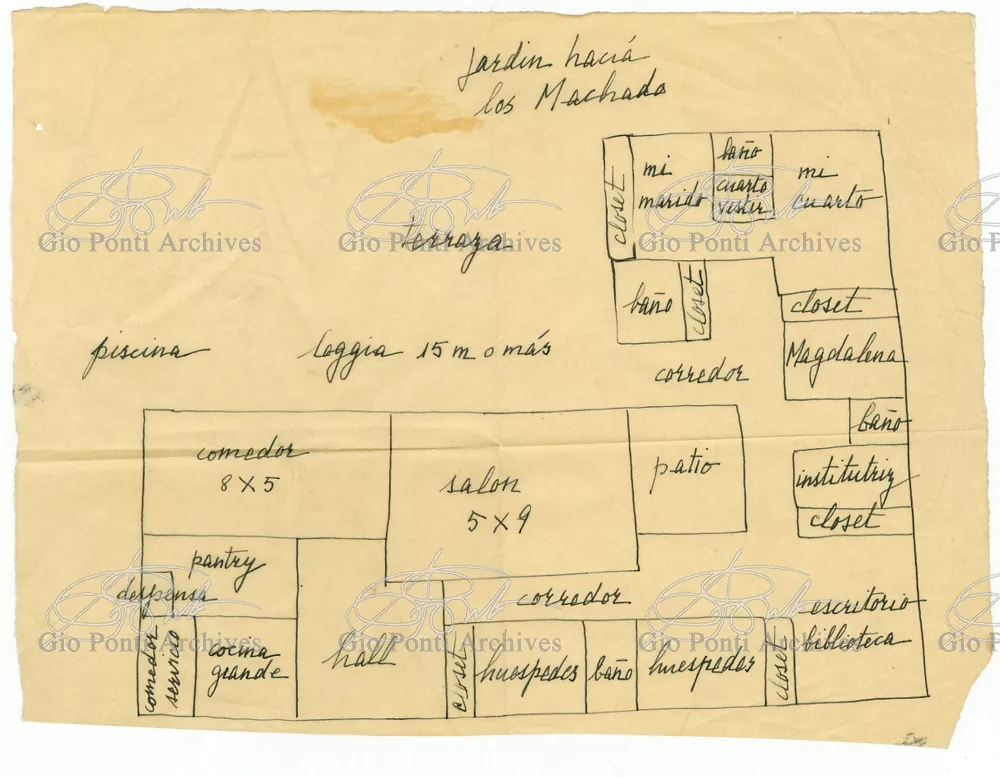 Jardin haciá
los Machado
closet
mi
marido
baño
cuarto
vester
mi
cuarto
terraza
baño
closet
closet
piscina
loggia 15 m o más
corredor
Magdalena
baño
comedor
8 X 5
salon
5 X 9
patio
institutriz
closet
pantry
despensa
corredor
escritorio
biblioteca
comedor
servicio
cocina
grande
hall
closet
huespedes
baño
huespedes
closet
Gio Ponti Archives
Gio Ponti Archives
Gio Ponti Archives
Gio P
Gio Ponti Archives
Gio Ponti Archives
Gio Ponti Archives
Gio P